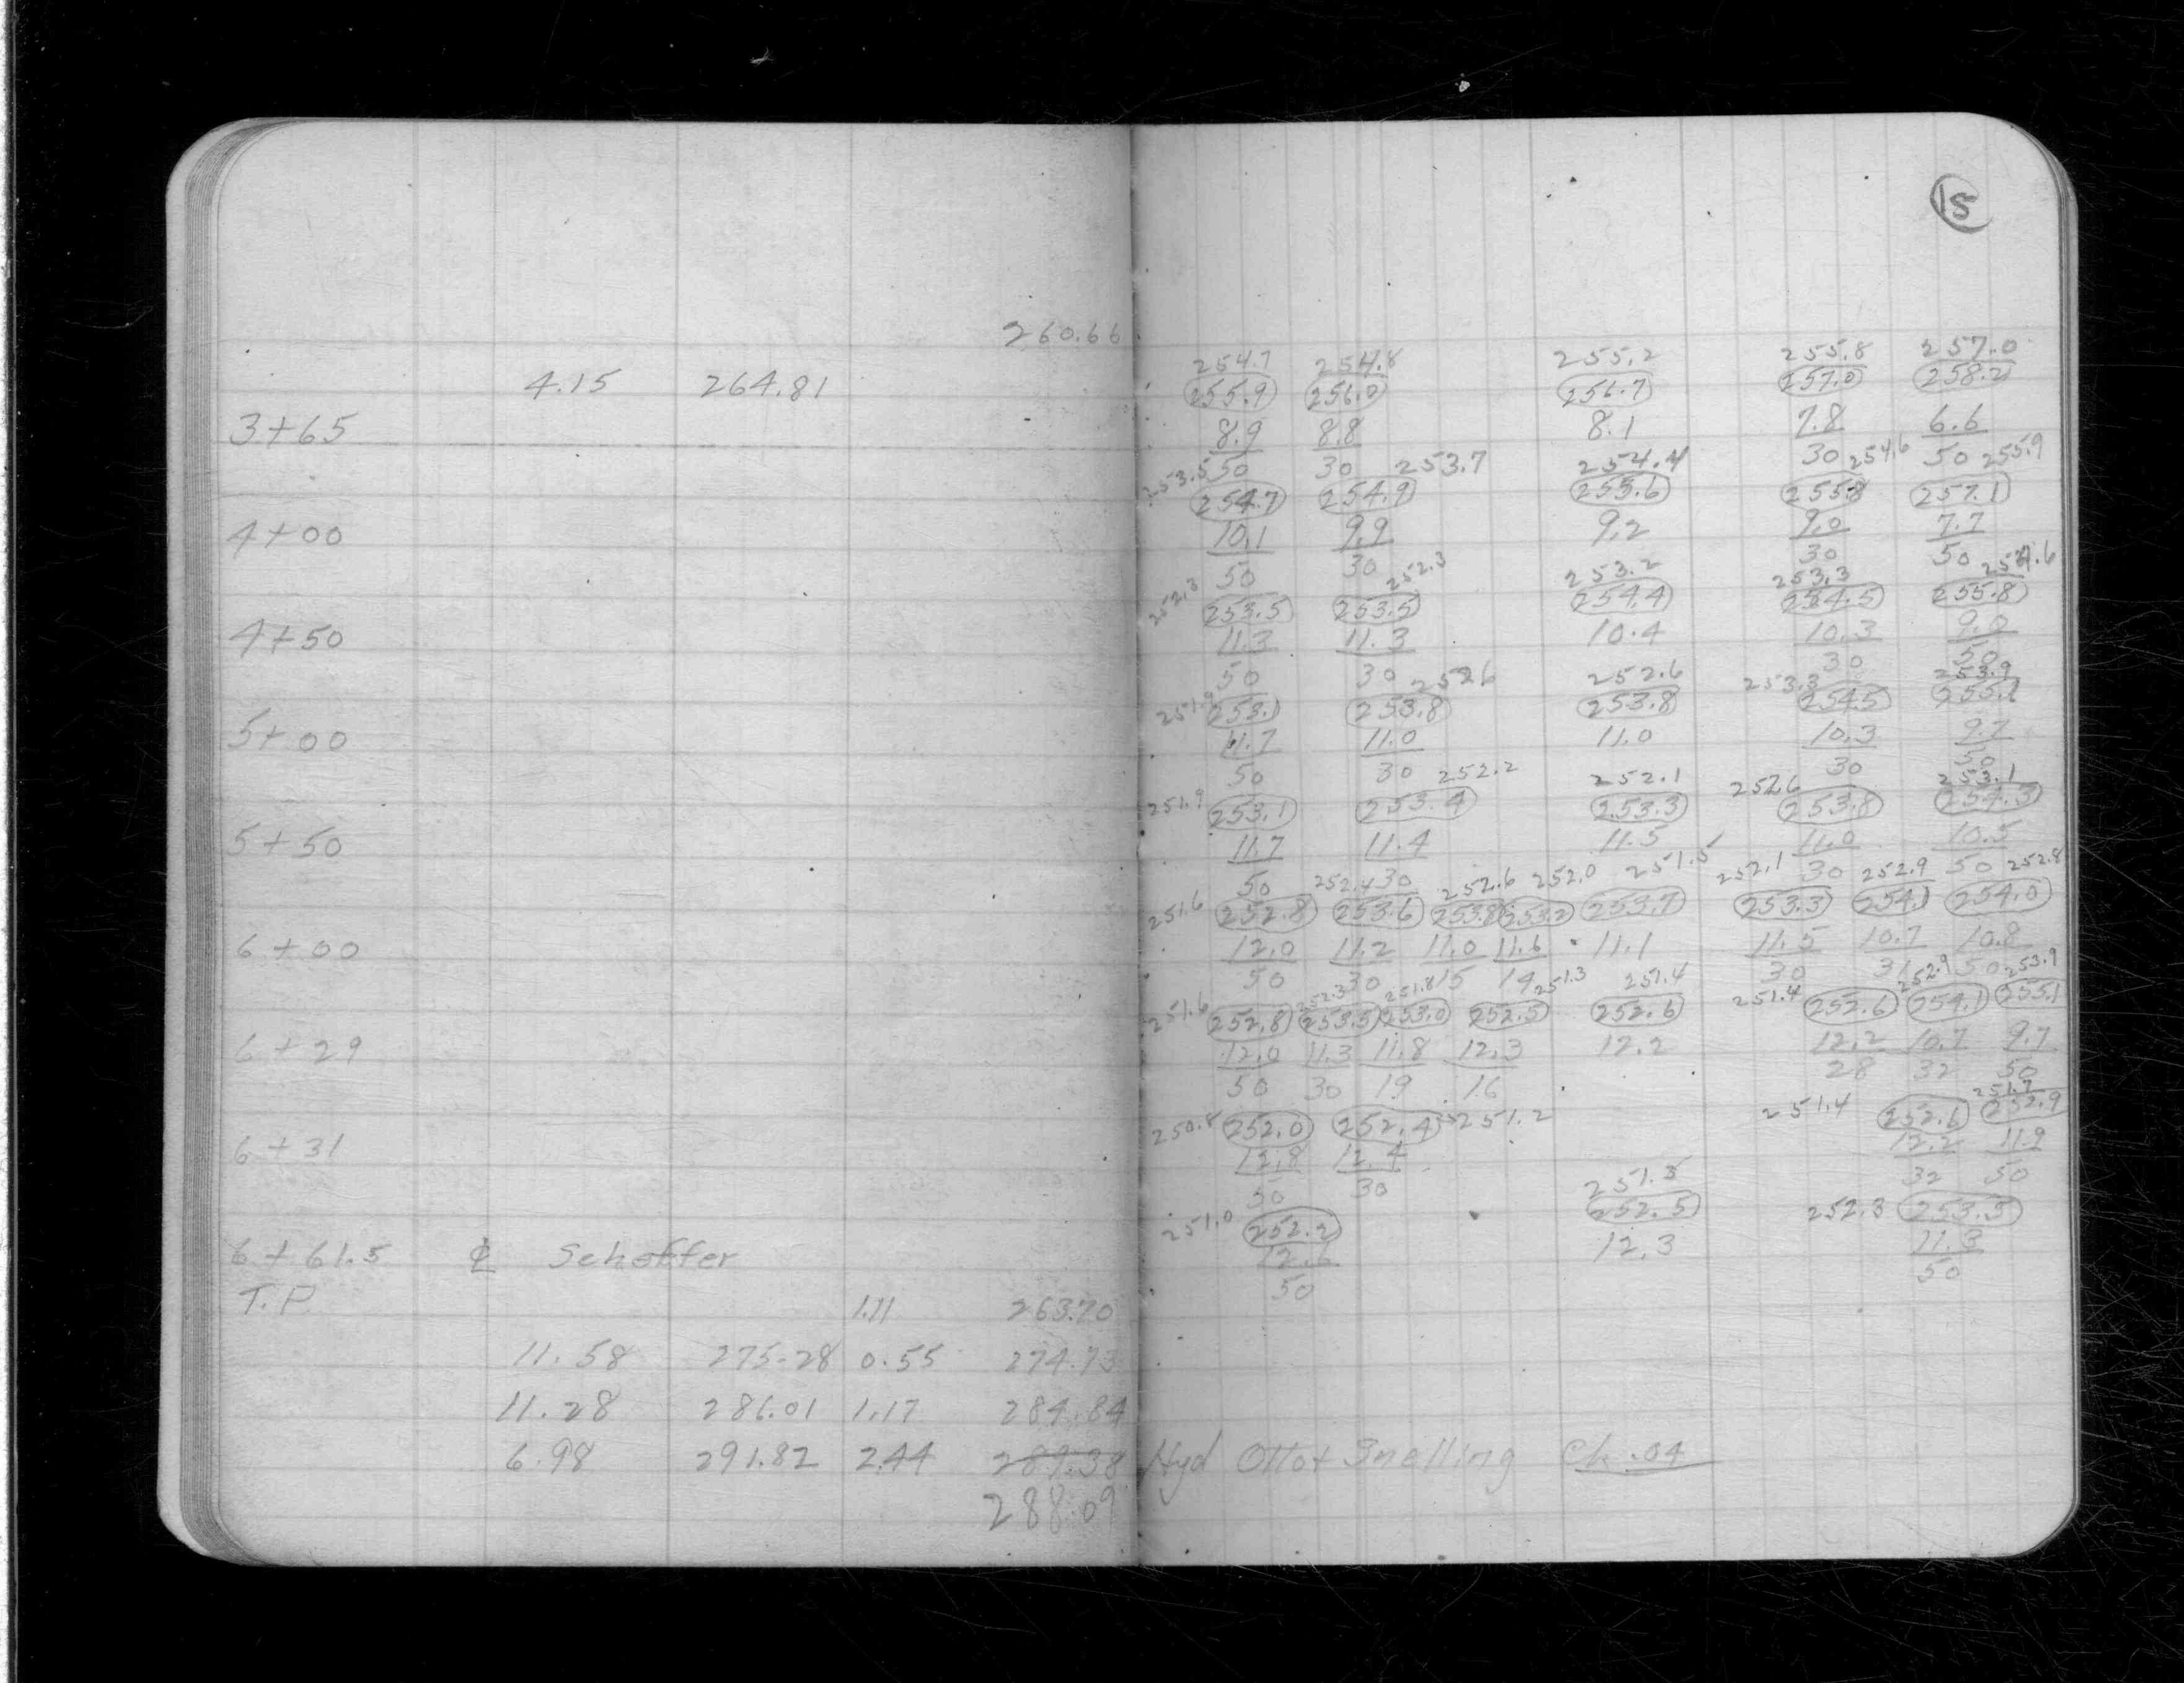 15
260.66
4.15 264.81
254.7 254.8 255.2 255.8 257.0
255.9 256.0 256.7 257.0 258.2
3+65 8.9 8.8 8.1 7.8 6.6
253.5 50 30 253.7 254.4 30 254.6 50 255.9
254.7 254.9 255.6 255.8 257.1
4+00 10.1 9.9 9.2 9.0 7.7
50 30 30 50
252.3 252.3 253.2 253.3 254.6
253.5 253.5 254.4 254.5 255.8
4+50 11.3 11.3 10.4 10.3 9.0
50 30 30 50
251.9 252.6 252.6 253.3 253.9
253.1 253.8 253.8 254.5 255.1
5+00 11.7 11.0 11.0 10.3 9.7
50 30 30 50
251.9 252.2 252.1 252.6 253.1
253.1 253.4 253.3 253.8 254.3
5+50 11.7 11.4 11.5 11.0 10.5
50 30 30 50
251.6 252.4 252.6 252.0 251.5 252.1 252.9 252.8
252.8 253.6 253.8 253.2 253.7 253.3 254.1 254.0
6+00 12.0 11.2 11.0 11.6 11.1 11.5 10.7 10.8
50 30 15 14 30 31 50
251.6 252.3 251.8 251.3 251.4 251.4 252.9 253.9
252.8 253.5 253.0 252.5 252.6 252.6 254.1 255.1
6+29 12.0 11.3 11.8 12.3 12.2 12.2 10.7 9.7
50 30 19 16 28 32 50
250.8 252.0 252.4 251.2 251.4 252.6 251.7 252.9
6+31 12.8 12.4 12.2 11.9
50 30 32 50
251.3
251.0 252.2 252.5 252.3 253.5
6+61.5 ₵ Scheffer 12.6 12.3 11.3
50 50
T.P. 1.11 263.70
11.58 275.28 0.55 274.73
11.28 286.01 1.17 284.84
6.98 291.82 2.44 289.38 Hyd Otto+Snelling Ch .04
288.09